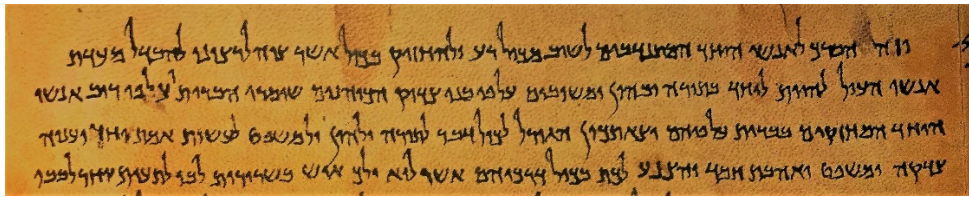 וזה הסרך לאנשי היחד המתנדבים לשוב מכול רע ולהחזיק בכול אשר צוה לרצונו להבדל מעדת
אנשי העול להיות ליחד בתורה ובהון ומשובים על פי בני צדוק הכוהנים שומרי הברית ועל פי רוב אנשי
היחד המחזקים בברית על פיהם יצא תכון הגורל לכול דבר לתורה ולהון ולמשפט לעשות אמת יחד וענוה
צדקה ומשפט ואהבת חסד והצנע לכת בכול דרכיהם אשר לוא ילך איש בשרירות לבו לתעות אחר לבבו